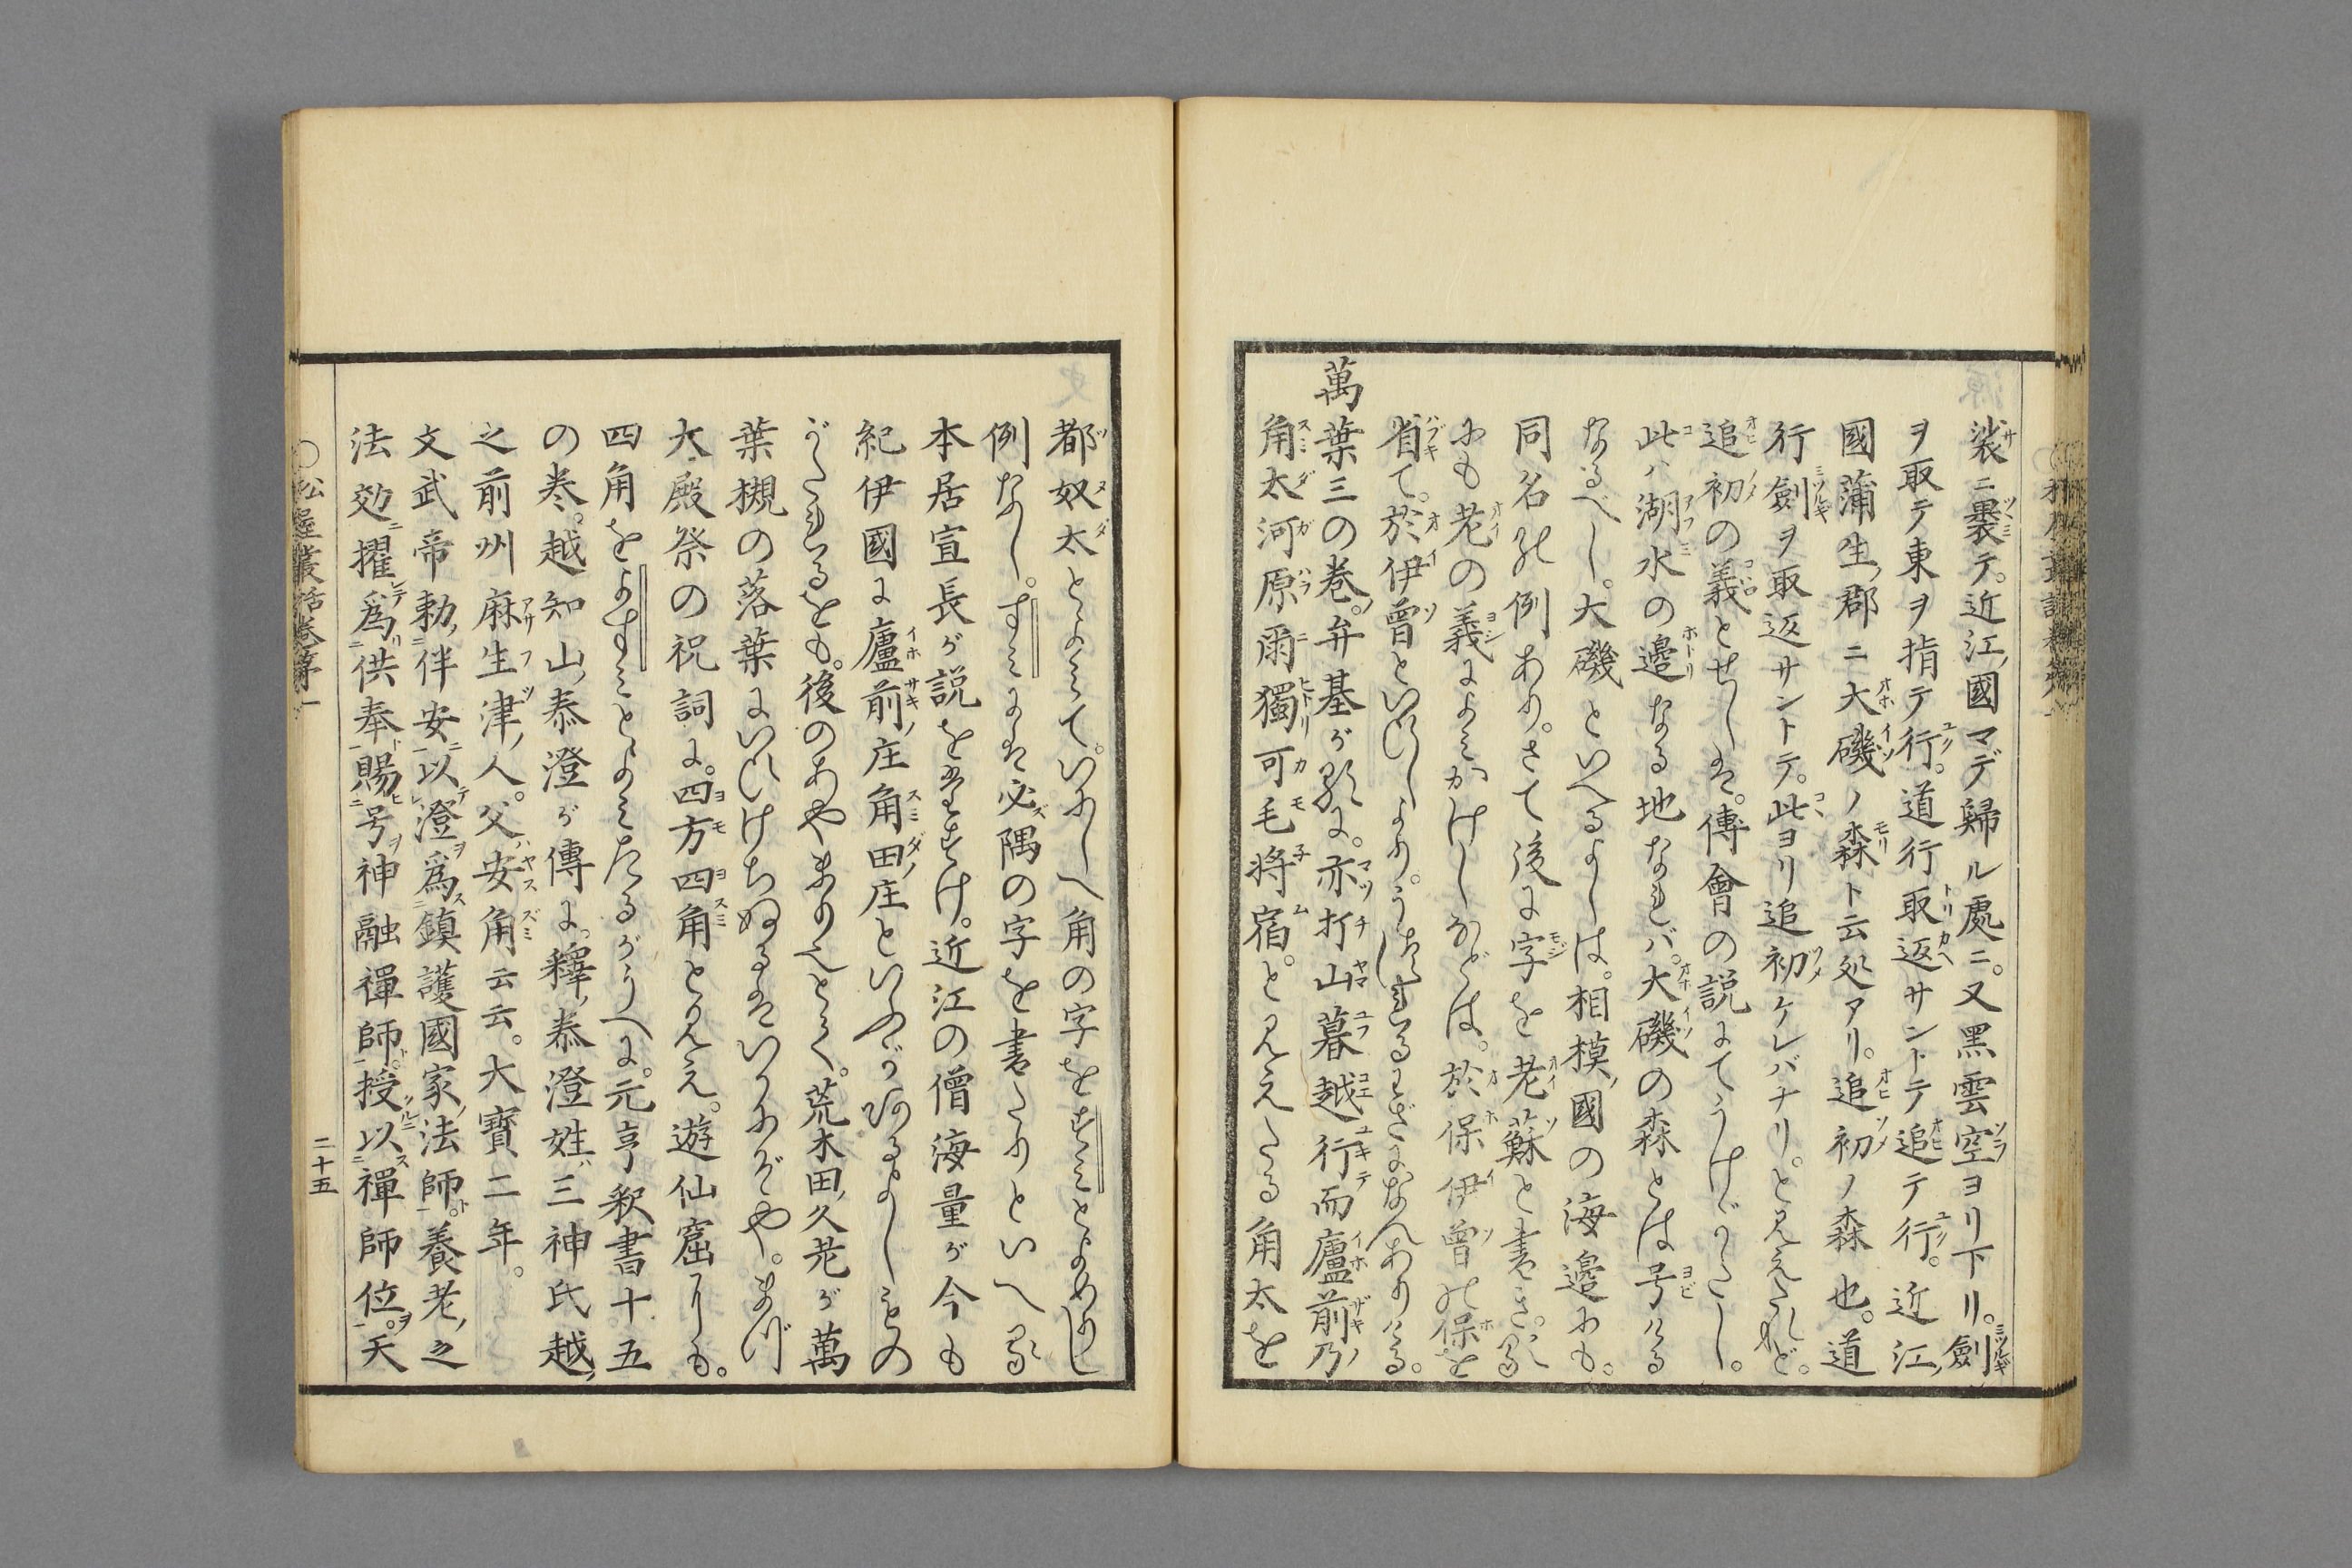 裳ニ裹テ。近江ノ國マデ歸ル處ニ。又黒雲空ヨリ下リ。劔
ヲ取テ東ヲ指テ行。道行取返サントテ追テ行。近江ノ
國蒲生ノ郡ニ大磯ノ森ト云処アリ。追初ノ森也。道
行劔ヲ取返サントテ。此ヨリ追初ケレバナリ。と見えたれど。
追初の義とせしは。傳會の説にてうけがたし。
此ハ湖水の邊なる地なれバ。大磯の森とは号ける
なるべし。大磯といへるよしは。相模ノ國の海邊にも。
同名の例あり。さて後に字を老蘇と書き。歌
にも老の義によみかけしなどは。於保伊曾の保を
省て。於伊曾といひしより。うつれるわざになんありける。
萬葉三の巻ノ。弁基が歌に。亦打山暮越行而廬前乃
角太河原爾獨可毛將宿。と見えたる角太を
都奴太とよみて。いにしへ角の字をすみとよめりし
例なし。すみには必隅の字を書たりといへる
本居宣長が説をたすけ。近江の僧海量が今も
紀伊國に廬前ノ庄角田ノ庄といふがあるよしもの
がたれるをも。後のあやまりとく。荒木田ノ久老が萬
葉槻の落葉にいひけちぬるはいかにぞや。まづ
大殿祭の祝詞に。四方四角と見え。遊仙窟にも。
四角をよすみとよみたるがうへに。元亨釈書十五
の巻。越知山ノ泰澄が傳に。釋ノ泰澄姓ハ三神氏越ノ
之前州麻生津ノ人。父ハ安角云云。大寶二年。
文武帝勅ノ伴安以澄爲鎮護國家ノ法師。養老ノ之
法効擢爲供奉賜号神融禪師。授以禪師位。天
○松屋叢話巻第一
二十五